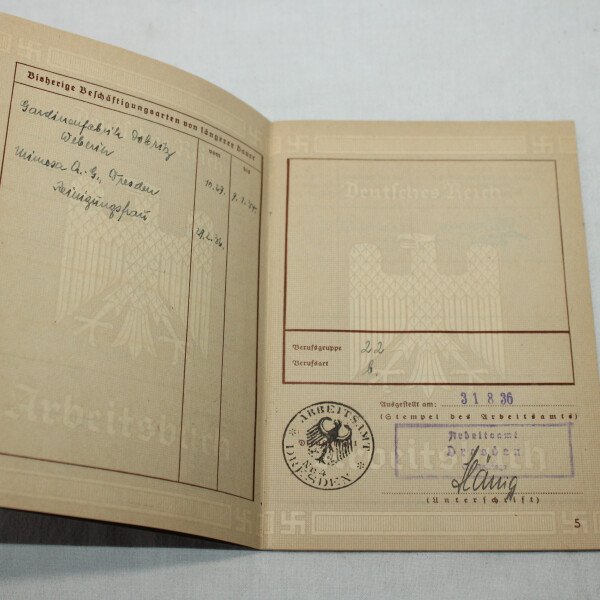 Bisherige Beschäftigungsarten von längerer Dauer
vom
bis
Gardinenfabrik Dobritz
Weberin
Mimosa A.G., Dresden
Reinigungsfrau
Arbeitsbuch
Deutsches Reich
Berufsgruppe 22
Berufsart b.
Ausgestellt am: 31 8 36
(Stempel des Arbeitsamts)
ARBEITSAMT
DRESDEN
Arbeitsamt
Dresden
Arbeitsbuch
(Unterschrift)
5